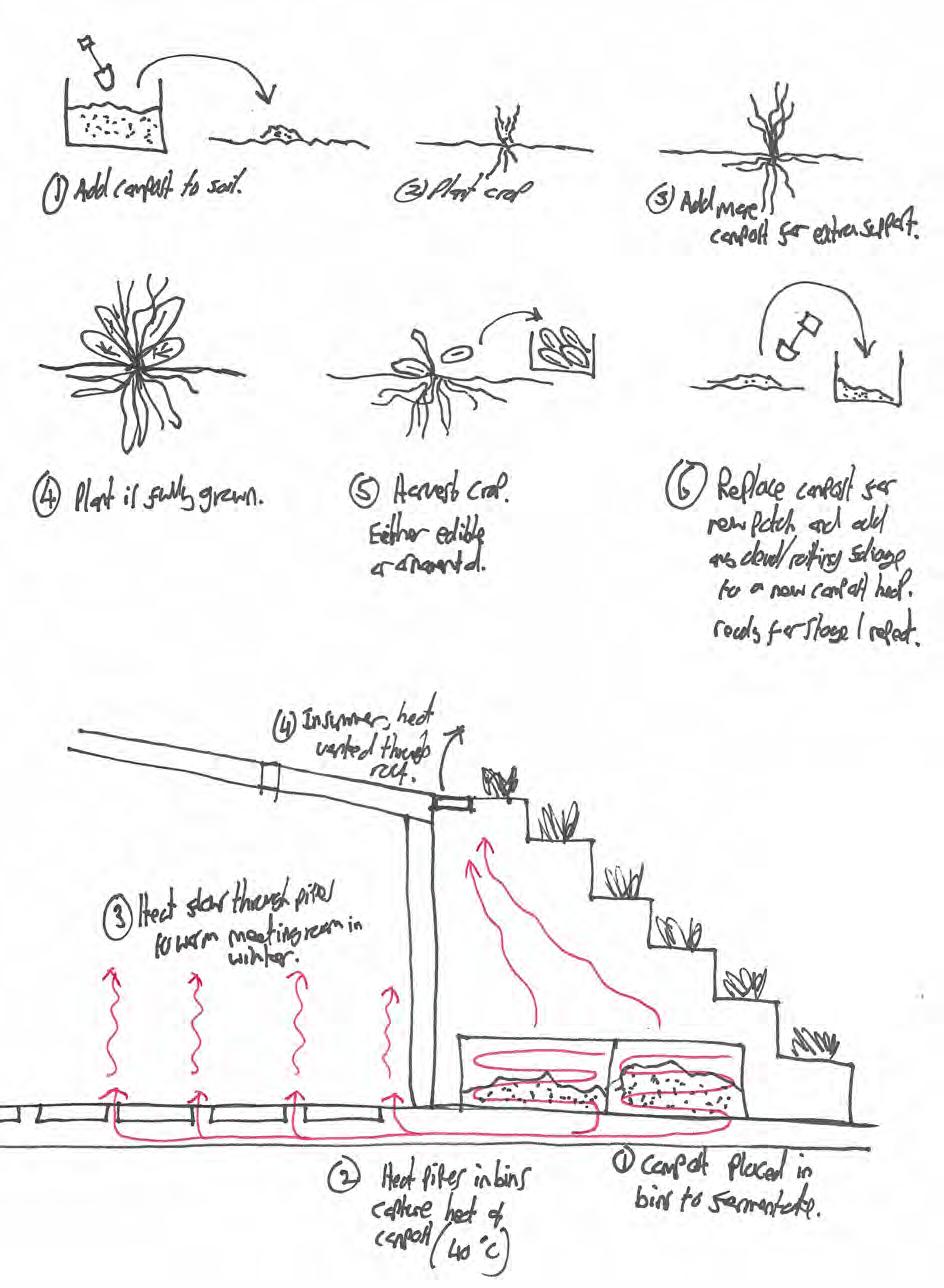 ① Add compost to soil.
② Plant crop
③ Add more
compost for extra support.
④ Plant is fully grown.
⑤ Harvest crop.
Either edible
or ornamental.
⑥ Replace compost for
new patch and add
any dead/rotting foliage
to a new compost heap.
ready for stage 1 repeat.
④ In summer, heat
vented through
roof.
③ Heat flow through pipes
to warm meeting room in
winter.
② Heat pipes in bins
capture heat of
compost (40°C)
① Compost placed in
bins to fermentate.